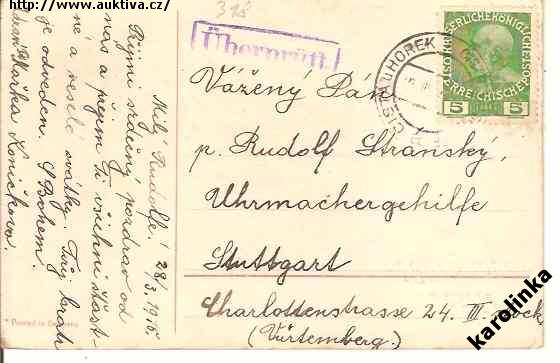 http://www.auktiva.cz/
318
Überprüft
HOREK
KAISERLICHE KÖNIGLICHE
ÖSTERREICHISCHE POST
5 5
Milý Rudolfe! 28/3. 1915.
Přijmi srdečný pozdrav od
nás a přejem Ti všichni šťast-
né a veselé svátky. Tvůj bratr
je odveden. S Bohem.
Koníčkova.
Vážený Pán
p. Rudolf Stránský,
Uhrmachergehilfe
Stuttgart
Charlottenstrasse 24. III. Stock
(Würtemberg.)
Printed in Germany
karolinka